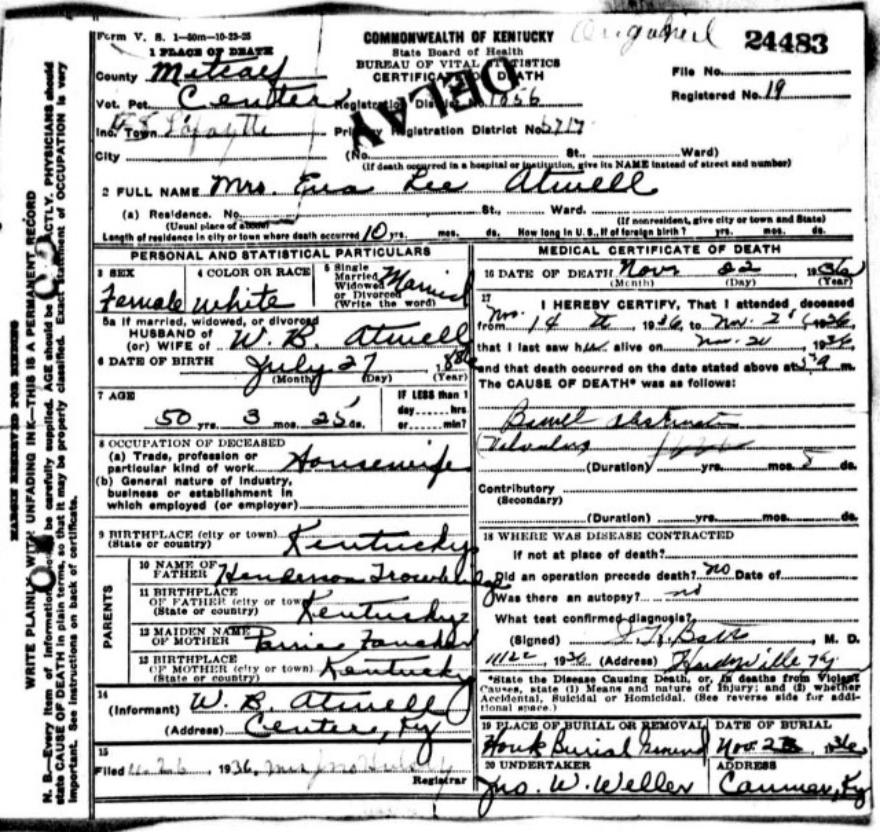 Form V. S. 1—50m—10-23-25
COMMONWEALTH OF KENTUCKY
24483
State Board of Health
BUREAU OF VITAL STATISTICS
CERTIFICATE OF DEATH
DELAY
1 PLACE OF DEATH
County Metcalf
File No.
Vot. Pct. Center Registration District No. 1056
Registered No. 19
Inc. Town Lafayette Primary Registration District No. 5717
City (No. St., Ward)
(If death occurred in a hospital or institution, give its NAME instead of street and number)
2 FULL NAME Mrs. Eva Lee Atwell
(a) Residence. No. St., Ward.
(Usual place of abode) (If nonresident, give city or town and State)
Length of residence in city or town where death occurred 10 yrs. mos. ds. How long in U. S., if of foreign birth? yrs. mos. ds.
PERSONAL AND STATISTICAL PARTICULARS
3 SEX Female
4 COLOR OR RACE white
5 Single Married Widowed or Divorced (Write the word) Married
5a If married, widowed, or divorced
HUSBAND of
(or) WIFE of W. B. Atwell
6 DATE OF BIRTH July 27 1886
(Month) (Day) (Year)
7 AGE
50 yrs. 3 mos. 25 ds.
IF LESS than 1
day hrs.
or min?
8 OCCUPATION OF DECEASED
(a) Trade, profession or
particular kind of work Housewife
(b) General nature of industry,
business or establishment in
which employed (or employer)
9 BIRTHPLACE (city or town)
(State or country) Kentucky
PARENTS
10 NAME OF
FATHER Henderson Trowbridge
11 BIRTHPLACE
OF FATHER (city or town)
(State or country) Kentucky
12 MAIDEN NAME
OF MOTHER
13 BIRTHPLACE
OF MOTHER (city or town)
(State or country) Kentucky
14
(Informant) W. B. Atwell
(Address) Center, Ky
15
Filed 11-26, 1936,
Registrar
MEDICAL CERTIFICATE OF DEATH
16 DATE OF DEATH Nov 22 1936
(Month) (Day) (Year)
17
I HEREBY CERTIFY, That I attended deceased
from Nov. 14 1936, to Nov. 1936,
that I last saw her alive on Nov. 20 1936,
and that death occurred on the date stated above at 5 a m.
The CAUSE OF DEATH* was as follows:
Bowel obstruct
Volvulus
(Duration) yrs. mos. 5 ds.
Contributory
(Secondary)
(Duration) yrs. mos. ds.
18 WHERE WAS DISEASE CONTRACTED
If not at place of death?
Did an operation precede death? no Date of
Was there an autopsy? no
What test confirmed diagnosis?
(Signed) M. D.
11/22, 1936 (Address) Hardyville Ky
*State the Disease Causing Death, or, in deaths from Violent
Causes, state (1) Means and nature of Injury; and (2) whether
Accidental, Suicidal or Homicidal. (See reverse side for addi-
tional space.)
19 PLACE OF BURIAL OR REMOVAL
Houk Burial Ground
DATE OF BURIAL
Nov. 1936
20 UNDERTAKER
Jno. W. Weller
ADDRESS
Canmer, Ky
MARGIN RESERVED FOR BINDING
WRITE PLAINLY WITH UNFADING INK—THIS IS A PERMANENT RECORD
N. B.—Every item of information be carefully supplied. AGE should be EXACTLY. PHYSICIANS should
state CAUSE OF DEATH in plain terms, so that it may be properly classified. Exact statement of OCCUPATION is very
important. See instructions on back of certificate.